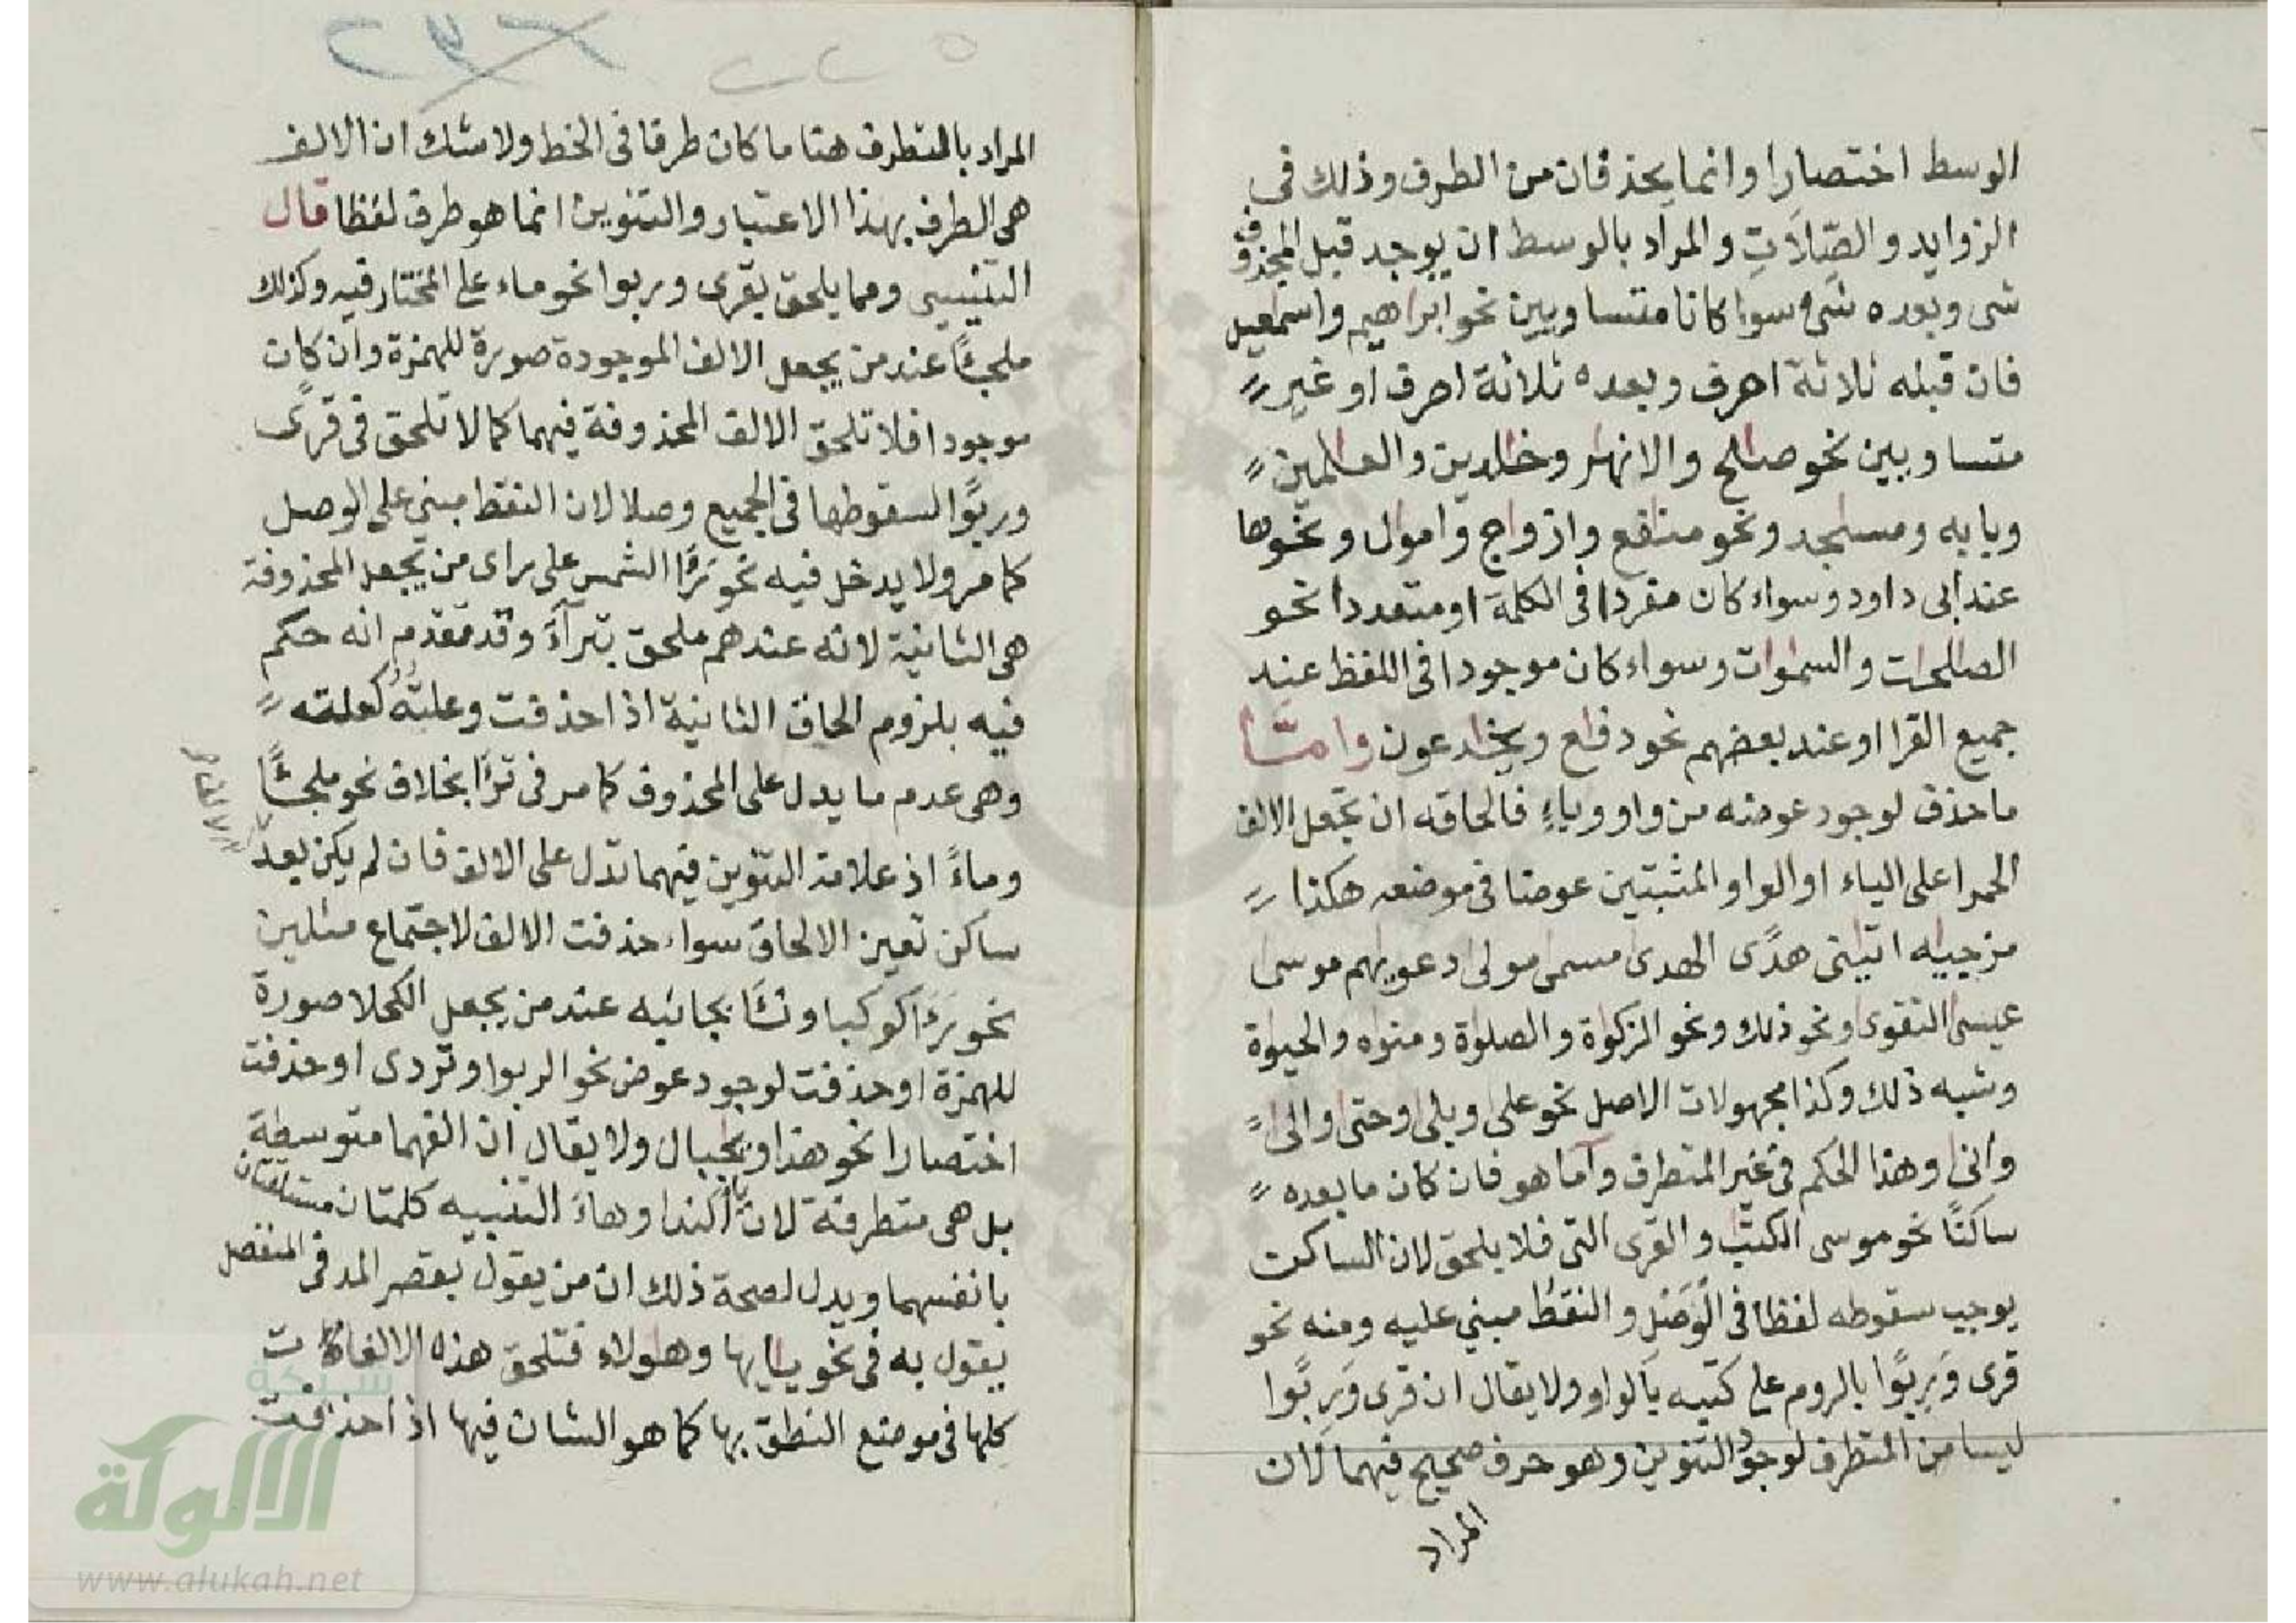 الوسط اختصارا وانما يحذفان من الطرف وذلك فى
الزوايد والصِّلَاتِ والمراد بالوسط ان يوجد قبل المحذوف
شى وبعده شئ سوا كانا متساويين نحو ابراهيم واسمعيل
فان قبله ثلاثة احرف وبعده ثلاثة احرف او غير
متساويين نحو صالح والانهار وخالدين والعالمين
وبابه ومساجد ونحو منافع وازواج واموال ونحوها
عند ابى داود وسواء كان مفردا فى الكلمة او متعددا نحو
الصالحات والسموات وسواء كان موجودا فى اللفظ عند
جميع القرا او عند بعضهم نحو دفاع ويخادعون وامتا
ما حذف لوجود عوضه من واو وياءٍ فالحاقه ان تجعل الالف
الحمرا على الياء او الواو المثبتين عوضا فى موضعه هكذا
مزجيه اتينى هدًى الهدى مسمى مولى دعويهم موسى
عيسى التقوى ونحو ذلك ونحو الزكوة والصلوة ومنوه والحيوة
وشبه ذلك وكذا مجهولات الاصل نحو على وبلى وحتى والى
وانى وهذا الحكم فى غير المتطرف وآما هو فان كان ما بعده
ساكنًا نحو موسى الكتب والقرى التى فلا يلحق لان الساكن
يوجب سقوطه لفظا فى الوصل والنقط مبني عليه ومنه نحو
قرى وَرِبًوا بالروم على كتبه بالواو ولا يقال ان قرى وَرِبًوا
ليسا من المتطرف لوجود التنوين وهو حرف صحيح فيهما لان
المراد
المراد بالمتطرف هنا ما كان طرفا فى الخط ولا شك ان الالف
هى الطرف بهذا الاعتبار والتنوين انما هو طرف لفظا قال
التنيسى ومما يلحق بقرى وربوا نحو ماء على المختار فيه وكذلك
ملجئًا عند من يجعل الالف الموجودة صورة للهمزة وان كان
موجودا فلا تلحق الالف المحذوفة فيهما كما لا تلحق فى قرًى
وربًوا لسقوطها فى الجميع وصلا لان النقط مبني على الوصل
كما مر ولا يدخل فيه نحو رَءَا الشمس على راى من يجعل المحذوفة
هى الثانية لانه عندهم ملحق بترآءَ وقد تقدم انه حكم
فيه بلزوم الحاق الثانية اذا حذفت وعلته كعلته
وهى عدم ما يدل على المحذوف كما مر فى ترَا بخلاف نحو ملجئًا
وماءً اذ علامة التنوين فيهما تدل على الالف فان لم يكن بعد
ساكن تعين الالحاق سواء حذفت الالف لاجتماع مثلين
نحو رَءَا كوكبا ونئَا بجانبه عند من يجعل الكحلا صورة
للهمزة او حذفت لوجود عوض نحو الربوا وتردى او حذفت
اختصارا نحو هذا ويجبال ولا يقال ان الفهما متوسطة
بل هى متطرفة لان يا الندا وهاءَ التنبيه كلمتان مستقلتان
بانفسهما ويدل لصحة ذلك ان من يقول بقصر المد فى المنفصل
يقول به فى نحو يايها وهولاء فتلحق هذه الالفات
كلها فى موضع النطق بها كما هو الشان فيها اذا حذفت
شبكة
الالوكة
www.alukah.net